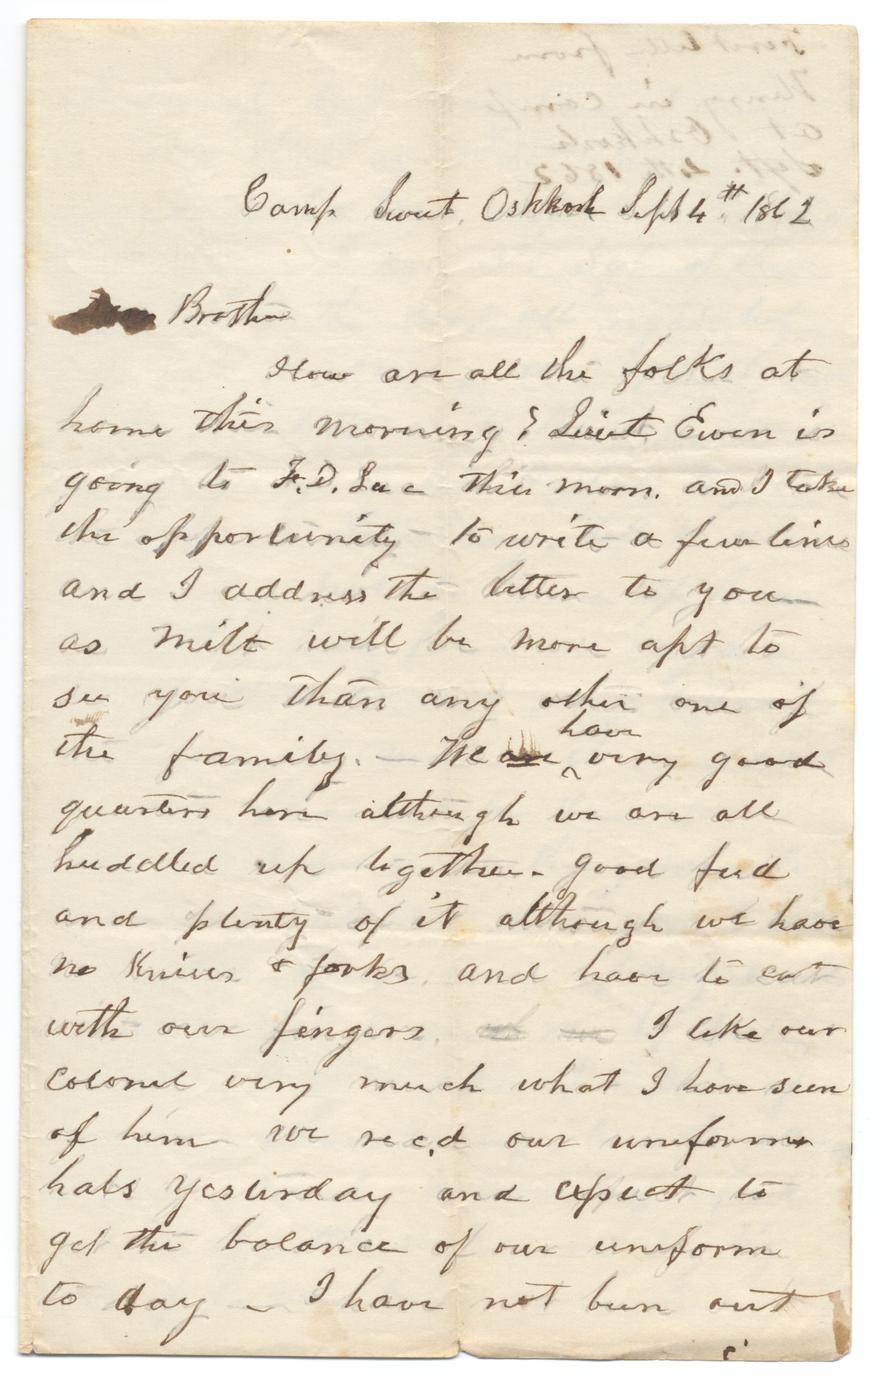 Camp Sweet, Oshkosh Sept 4th 1862
Brother
How are all the folks at
home this morning? Lieut Ewen is
going to F.D. Lac this morn. and I take
the opportunity to write a few lines
and I address the letter to you
as Milt will be more apt to
see you than any other one of
have
the family. — We are ‸ very good
quarters here although we are all
huddled up together - good feed
and plenty of it although we have
no knives & forks, and have to eat
with our fingers. I like our
colonel very much what I have seen
of him we rec,d our uniform
hats yesterday and expect to
get the balance of our uniform
to day - I have not been out